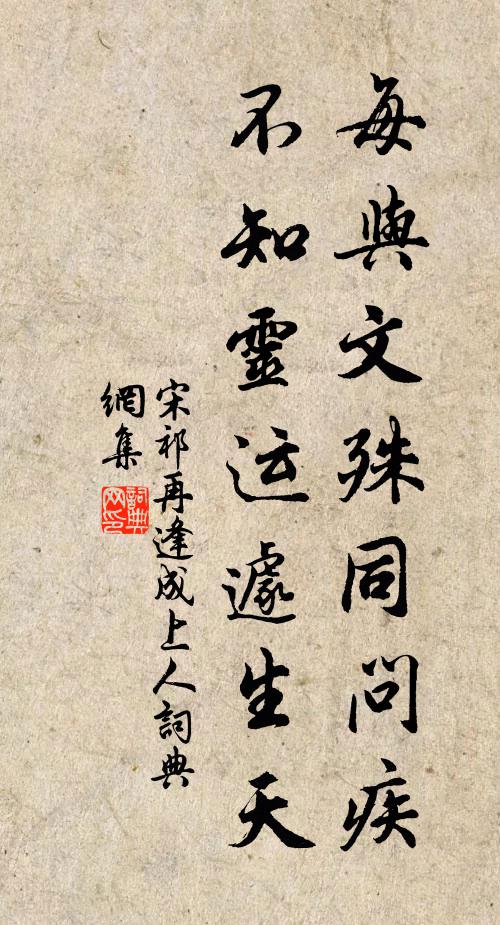 每與文殊同問疾
不知靈运遽生天
宋祁再逢成上人詞典
網集
詞典
网印